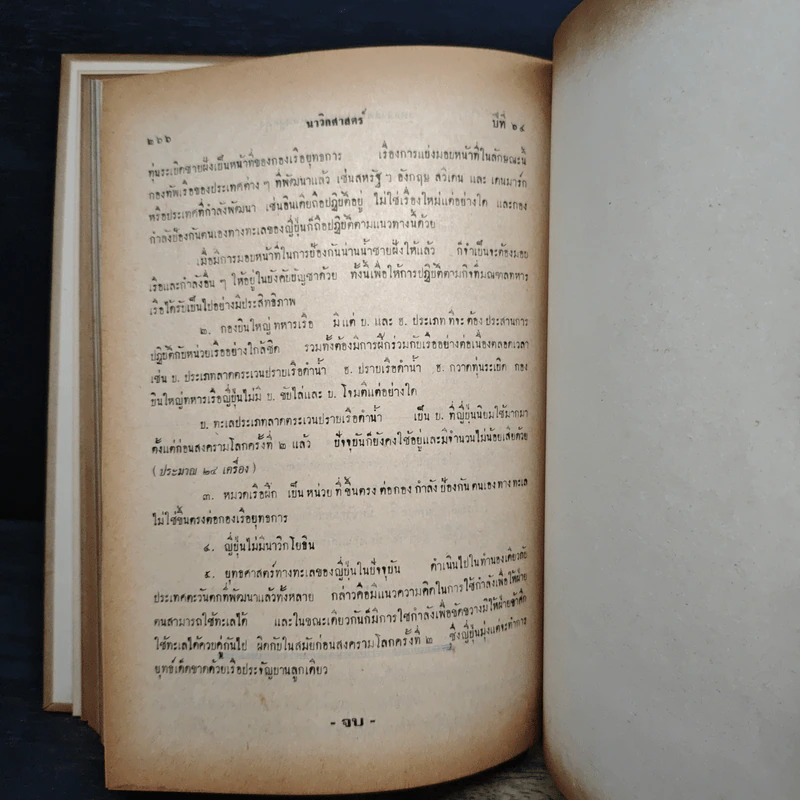 ๒๖๖ นาวิกศาสตร์ ปีที่ ๖๔
ทุ่นระเบิดชายฝั่งเป็นหน้าที่ของกองเรือยุทธการ เรื่องการแบ่งมอบหน้าที่ในลักษณะนี้
กองทัพเรือของประเทศต่าง ๆ ที่พัฒนาแล้ว เช่นสหรัฐ ๆ อังกฤษ สวีเดน และ เดนมาร์ก
หรือประเทศที่กำลังพัฒนา เช่นอินเดียถือปฏิบัติอยู่ ไม่ใช่เรื่องใหม่แต่อย่างใด และกอง
กำลังป้องกันตนเองทางทะเลของญี่ปุ่นก็ถือปฏิบัติตามแนวทางนี้ด้วย
เมื่อมีการมอบหน้าที่ในการป้องกันน่านน้ำชายฝั่งให้แล้ว ก็จำเป็นจะต้องมอบ
เรือและกำลังอื่น ๆ ให้อยู่ในบังคับบัญชาด้วย ทั้งนี้เพื่อให้การปฏิบัติตามกิจที่มณฑลทหาร
เรือได้รับเป็นไปอย่างมีประสิทธิภาพ
๒. กองบินใหญ่ทหารเรือ มีแต่ บ. และ ฮ. ประเภท ที่จะ ต้อง ประสานการ
ปฏิบัติกับหน่วยเรืออย่างใกล้ชิด รวมทั้งต้องมีการฝึกร่วมกับเรืออย่างต่อเนื่องตลอดเวลา
เช่น บ. ประเภทลาดตระเวนปราบเรือดำน้ำ ฮ. ปราบเรือดำน้ำ ฮ. กวาดทุ่นระเบิด กอง
บินใหญ่ทหารเรือญี่ปุ่นไม่มี บ. ขับไล่และ บ. โจมตีแต่อย่างใด
บ. ทะเลประเภทลาดตระเวนปราบเรือดำน้ำ เป็น บ. ที่ญี่ปุ่นนิยมใช้มากมา
ตั้งแต่ก่อนสงครามโลกครั้งที่ ๒ แล้ว ปัจจุบันก็ยังคงใช้อยู่และมีจำนวนไม่น้อยเสียด้วย
(ประมาณ ๒๔ เครื่อง)
๓. หมวดเรือฝึก เป็น หน่วย ที่ ขึ้นตรง ต่อกอง กำลัง ป้องกัน ตนเอง ทาง ทะเล
ไม่ใช่ขึ้นตรงต่อกองเรือยุทธการ
๔. ญี่ปุ่นไม่มีนาวิกโยธิน
๕. ยุทธศาสตร์ทางทะเลของญี่ปุ่นในปัจจุบัน ดำเนินไปในทำนองเดียวกับ
ประเทศตะวันตกที่พัฒนาแล้วทั้งหลาย กล่าวคือมีแนวความคิดในการใช้กำลังเพื่อให้ฝ่าย
ตนสามารถใช้ทะเลได้ และในขณะเดียวกันก็มีการใช้กำลังเพื่อขัดขวางมิให้ฝ่ายข้าศึก
ใช้ทะเลได้ควบคู่กันไป ผิดกับในสมัยก่อนสงครามโลกครั้งที่ ๒ ซึ่งญี่ปุ่นมุ่งแต่จะทำการ
ยุทธ์เด็ดขาดด้วยเรือประจัญบานลูกเดียว
- จบ -